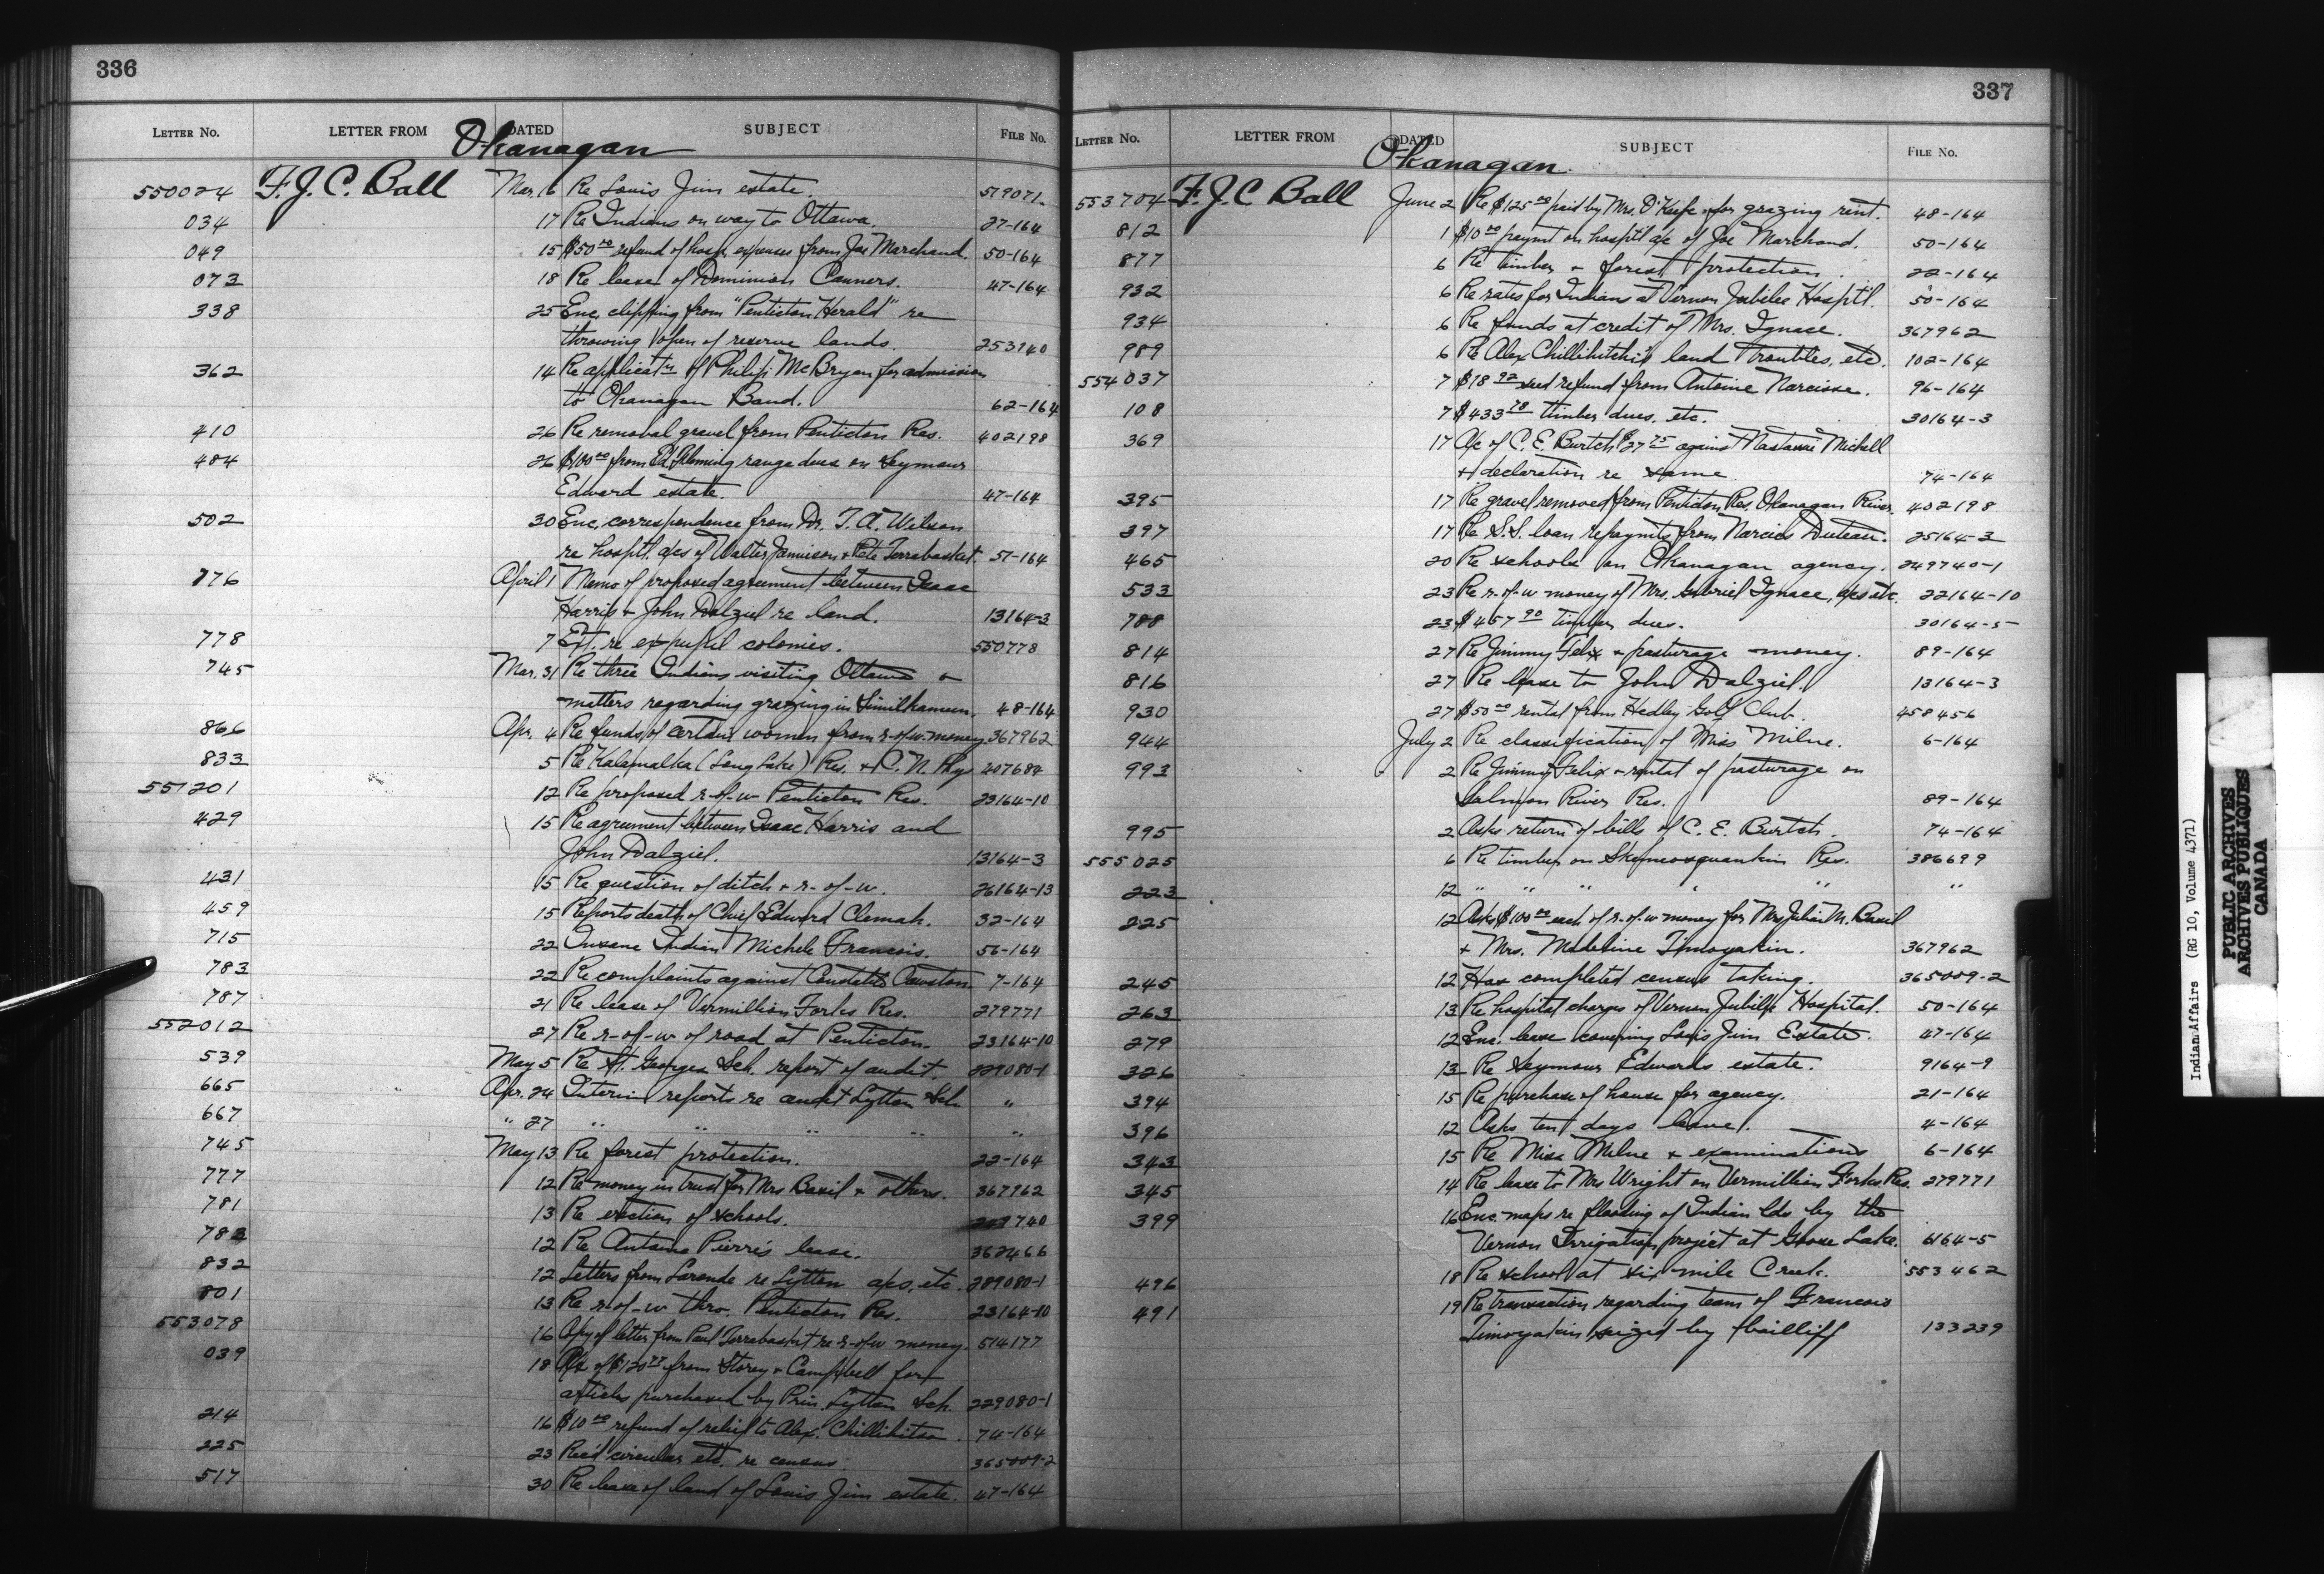 336
LETTER NO. LETTER FROM DATED SUBJECT FILE NO.
Okanagan
550024 F. J. C. Ball Mar. 16 Re Louis Jim estate. 519071
034 17 Re Indians on way to Ottawa. 27-164
049 15 $50.00 refund of hosp. expenses from Joe Marchand. 50-164
073 18 Re lease of Dominion Canners. 47-164
338 25 Enc. clipping from "Penticton Herald" re
throwing open of reserve lands. 253940
362 14 Re applicat'n of Philip McBryan for admission
to Okanagan Band. 62-164
410 26 Re removal gravel from Penticton Res. 402198
484 26 $100.00 from Ed. Fleming range dues on Seymour
Edward estate. 47-164
502 30 Enc. correspondence from Dr. T. A. Wilson
re hosptl. a/cs of Walter Jamieson & Pete Terrabasket. 51-164
776 April 1 Memo of proposed agreement between Isaac
Harris & John Dalziel re land. 13164-3
778 7 Ext. re ex pupil colonies. 550778
745 Mar. 31 Re three Indians visiting Ottawa &
matters regarding grazing in Similkameen. 48-164
866 Apr. 4 Re funds of certain women from r-of-w. money 367962
833 5 Re Kalamalka (Long Lake) Res. & C. N. Rlys 407684
551201 12 Re proposed r-of-w Penticton Res. 23164-10
429 15 Re agreement between Isaac Harris and
John Dalziel. 13164-3
431 15 Re question of ditch & r-of-w. 26164-13
459 15 Reports death of Chief Edward Clemah. 32-164
715 22 Insane Indian Michele Francois. 56-164
783 22 Re complaints against Constable Cawston 7-164
787 21 Re lease of Vermillion Forks Res. 279771
552012 27 Re r-of-w of road at Penticton. 23164-10
539 May 5 Re St. Georges Sch. report of audit. 229080-1
665 Apr. 24 Interim reports re audit Lytton Sch. "
667 " 27 " " " " "
745 May 13 Re forest protection. 22-164
777 12 Re money in trust for Mrs Basil & others. 367962
781 13 Re erection of schools. 740
783 12 Re Antoine Pierre's lease. 362466
832 12 Letters from Laronde re Lytton a/cs, etc. 289080-1
801 13 Re r-of-w thro. Penticton Res. 23164-10
553078 16 Copy of letter from Paul Terrabasket re r-of-w money. 514177
039 18 A/c of $120 from Storey & Campbell for
articles purchased by Prin. Lytton Sch. 229080-1
214 16 $10.00 refund of relief to Alex. Chillihitsa. 74-164
225 23 Rec'd circular etc. re census. 365009-2
517 30 Re lease of land of Louis Jim estate. 47-164
337
LETTER NO. LETTER FROM DATED SUBJECT FILE NO.
Okanagan.
553704 F. J. C Ball June 2 Re $125.00 paid by Mrs. O'Keefe for grazing rent. 48-164
812 1 $10.00 paymt on hosptl a/c of Joe Marchand. 50-164
877 6 Re timber & forest protection. 22-164
932 6 Re rates for Indians at Vernon Jubilee Hosptl. 50-164
934 6 Re funds at credit of Mrs. Ignace. 367962
989 6 Re Alex Chillihitchi's land troubles, etc. 102-164
554037 7 $18.92 seed refund from Antoine Narcisse. 96-164
108 7 $433.78 timber dues, etc. 30164-3
369 17 A/c of C. E. Burtch $27.75 against Nastassi Michell
& declaration re same 74-164
395 17 Re gravel removed from Penticton Res. Okanagan River. 402198
397 17 Re S.S. loan repaymts from Narcis Duteau. 25164-3
465 20 Re schools on Okanagan agency. 249740-1
533 23 Re r-of-w money of Mrs. Gabriel Ignace, a/cs etc. 22164-10
788 23 $457.90 timber dues. 30164-5
814 27 Re Jimmy Felix & pasturage money. 89-164
816 27 Re lease to John Dalziel. 13164-3
930 27 $50.00 rental from Hedley Golf Club. 458456
944 July 2 Re classification of Miss Milne. 6-164
993 2 Re Jimmy Felix & rental of pasturage on
Salmon River Res. 89-164
995 2 Asks return of bills of C. E. Burtch. 74-164
555025 6 Re timber on Skemeosquankin Res. 386699
223 12 " " " " " "
225 12 Asks $100.00 each of r-of-w money for Mrs Julia M. Basil
& Mrs. Madeline Timoyakin. 367962
245 12 Has completed census taking. 365009-2
263 13 Re hospital charges of Vernon Jubilee Hospital. 50-164
279 12 Enc. lease covering Louis Jim Estate. 47-164
326 13 Re Seymour Edwards estate. 9164-9
394 15 Re purchase of house for agency. 21-164
396 12 Asks ten days leave. 4-164
343 15 Re Miss Milne & examinations 6-164
345 14 Re lease to Mrs Wright on Vermillion Forks Res. 279771
399 16 Enc. maps re flooding of Indian lds by the
Vernon Irrigation project at Goose Lake. 6164-5
496 18 Re school at six mile Creek. 553462
491 19 Re transaction regarding team of Francois
Timoyakin seized by bailiff 133239
Indian Affairs (RG 10, Volume 4371)
PUBLIC ARCHIVES
ARCHIVES PUBLIQUES
CANADA